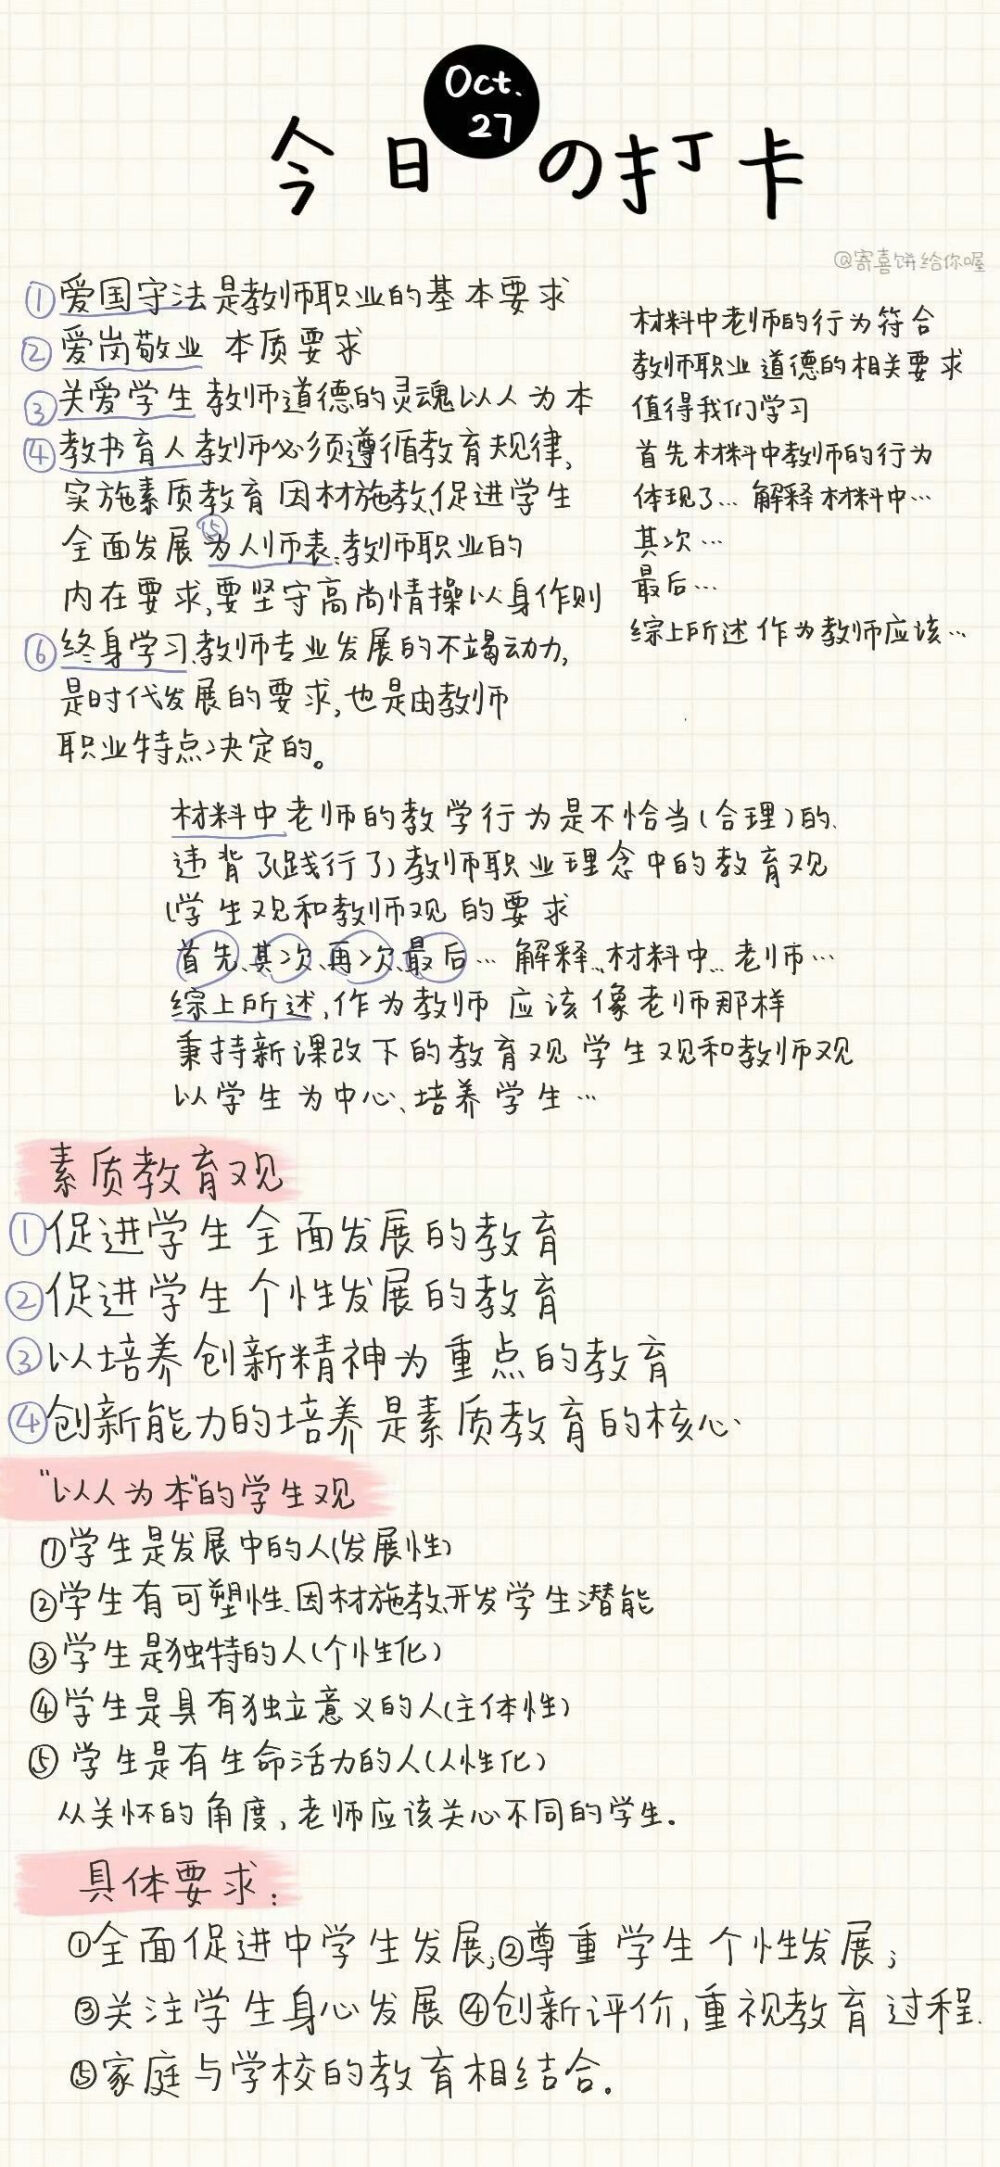 Oct.
27
今日の打卡
@寄喜饼给你喔
①爱国守法是教师职业的基本要求
②爱岗敬业 本质要求
③关爱学生 教师道德的灵魂以人为本
④教书育人教师必须遵循教育规律,
实施素质教育 因材施教,促进学生
全面发展⑤为人师表:教师职业的
内在要求,要坚守高尚情操以身作则
⑥终身学习.教师专业发展的不竭动力,
是时代发展的要求,也是由教师
职业特点决定的。
材料中老师的行为符合
教师职业道德的相关要求
值得我们学习
首先材料中教师的行为
体现了… 解释材料中…
其次…
最后…
综上所述作为教师应该…
材料中老师的教学行为是不恰当(合理)的.
违背了(践行了)教师职业理念中的教育观
(学生观和教师观的要求
首先、其次、再次、最后… 解释…材料中…老师…
综上所述,作为教师应该像老师那样
秉持新课改下的教育观学生观和教师观
以学生为中心、培养学生…
素质教育观
①促进学生全面发展的教育
②促进学生个性发展的教育
③以培养创新精神为重点的教育
④创新能力的培养是素质教育的核心.
“以人为本”的学生观
①学生是发展中的人(发展性)
②学生有可塑性.因材施教开发学生潜能
③学生是独特的人(个性化)
④学生是具有独立意义的人(主体性)
⑤学生是有生命活力的人(人性化)
从关怀的角度,老师应该关心不同的学生.
具体要求:
①全面促进中学生发展;②尊重学生个性发展;
③关注学生身心发展④创新评价,重视教育过程.
⑤家庭与学校的教育相结合.